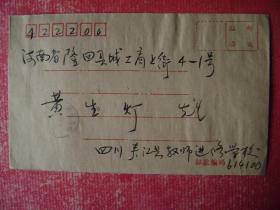 422200
贴邮
票处
河南省隆田县城工商上街4-1号
黄生灯
四川夹江县教师进修学校
邮政编码 614100